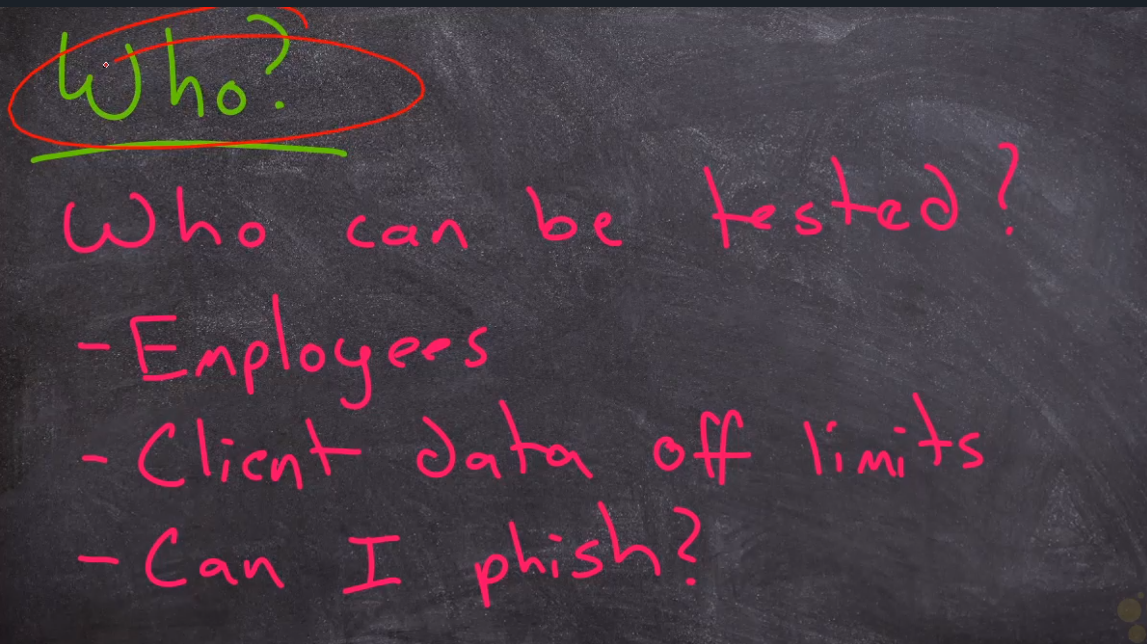 Who?
Who can be tested?
- Employees
- Client data off limits
- Can I phish?